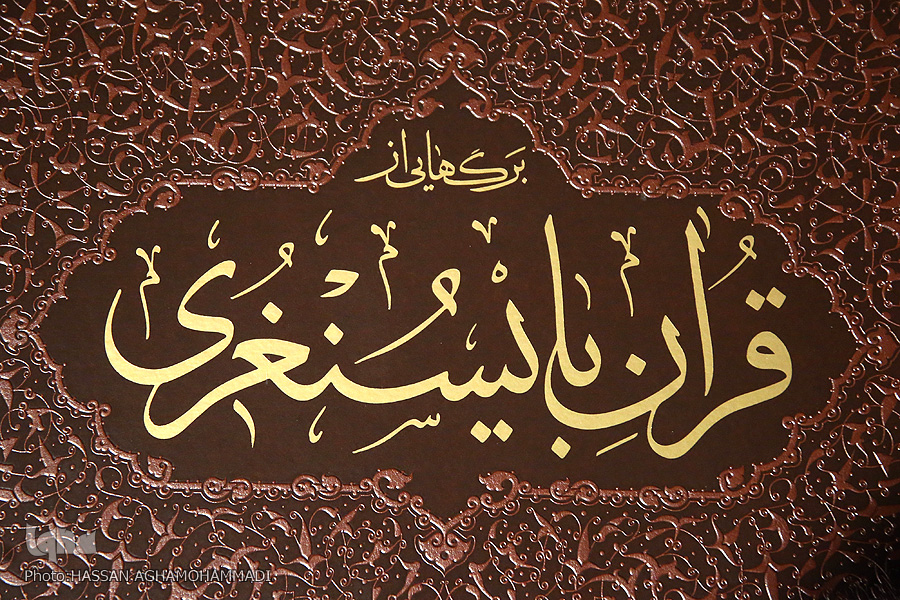 بَرگ‌هایی از
قُرآنِ بایسُنغُری
Photo:HASSAN AGHAMOHAMMADI